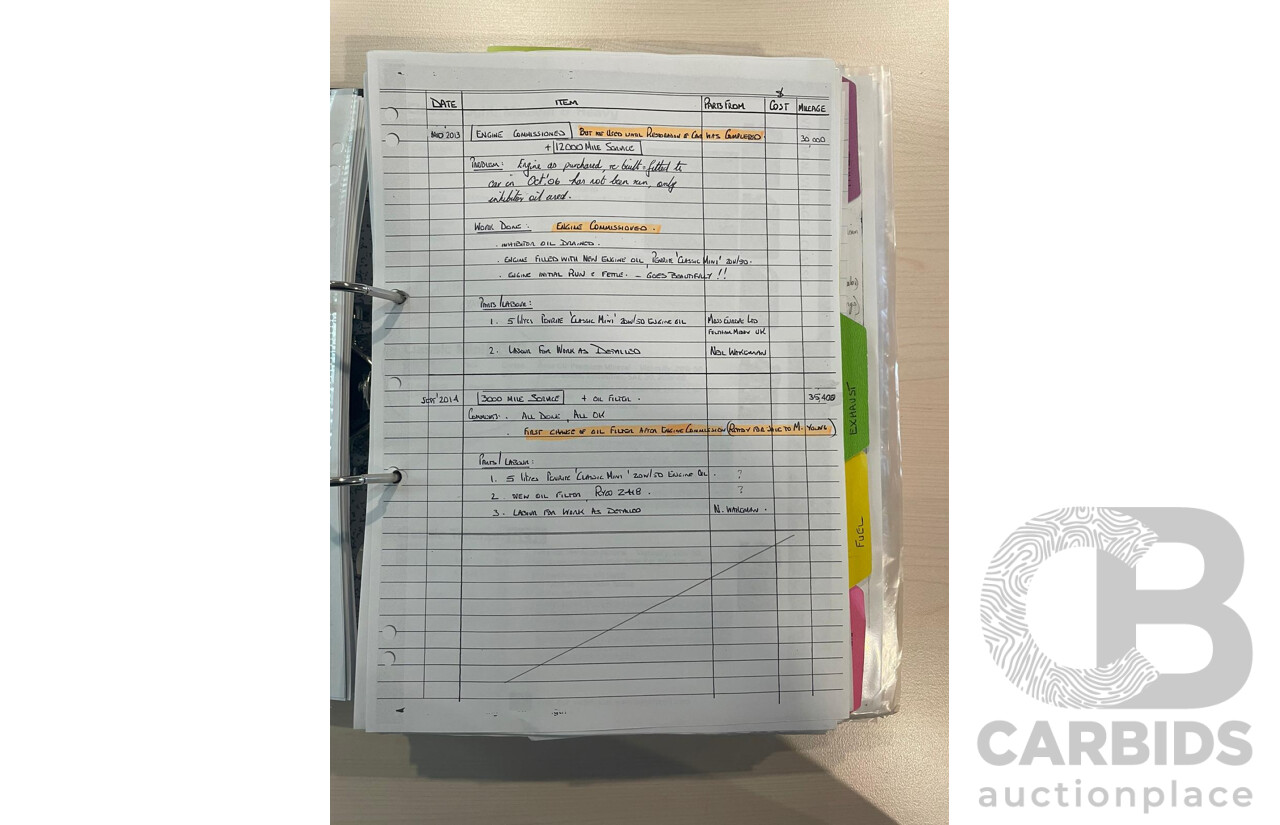 $
DATE ITEM PARTS FROM COST MILEAGE
2013 ENGINE COMMISSIONED BUT NOT USED UNTIL RESTORATION OF CAR WAS COMPLETED 30,000
+ 12000 MILE SERVICE
PROBLEM: Engine as purchased, re built + fitted to
car in Oct '06 has not been run, only
inhibitor oil used.
WORK DONE: ENGINE COMMISSIONED.
. INHIBITOR OIL DRAINED.
. ENGINE FILLED WITH NEW ENGINE OIL, PENRITE 'CLASSIC MINI' 20W/50.
. ENGINE INITIAL RUN & FETTLE. - GOES BEAUTIFULLY!!
PARTS/LABOUR:
1. 5 LITRES PENRITE 'CLASSIC MINI' 20W/50 ENGINE OIL
UK
2. LABOUR FOR WORK AS DETAILED NEIL WAKEMAN
SEPT' 2014 3000 MILE SERVICE + OIL FILTER. 35,408
COMMENT: . ALL DONE, ALL OK
. FIRST CHANGE OF OIL FILTER AFTER ENGINE COMMISSION (READY FOR SALE TO M. YOUNG)
PARTS/LABOUR:
1. 5 LITRES PENRITE 'CLASSIC MINI' 20W/50 ENGINE OIL. ?
2. NEW OIL FILTER, RYCO Z418. ?
3. LABOUR FOR WORK AS DETAILED N. WAKEMAN.
EXHAUST
FUEL
CB
CARBIDS
auctionplace